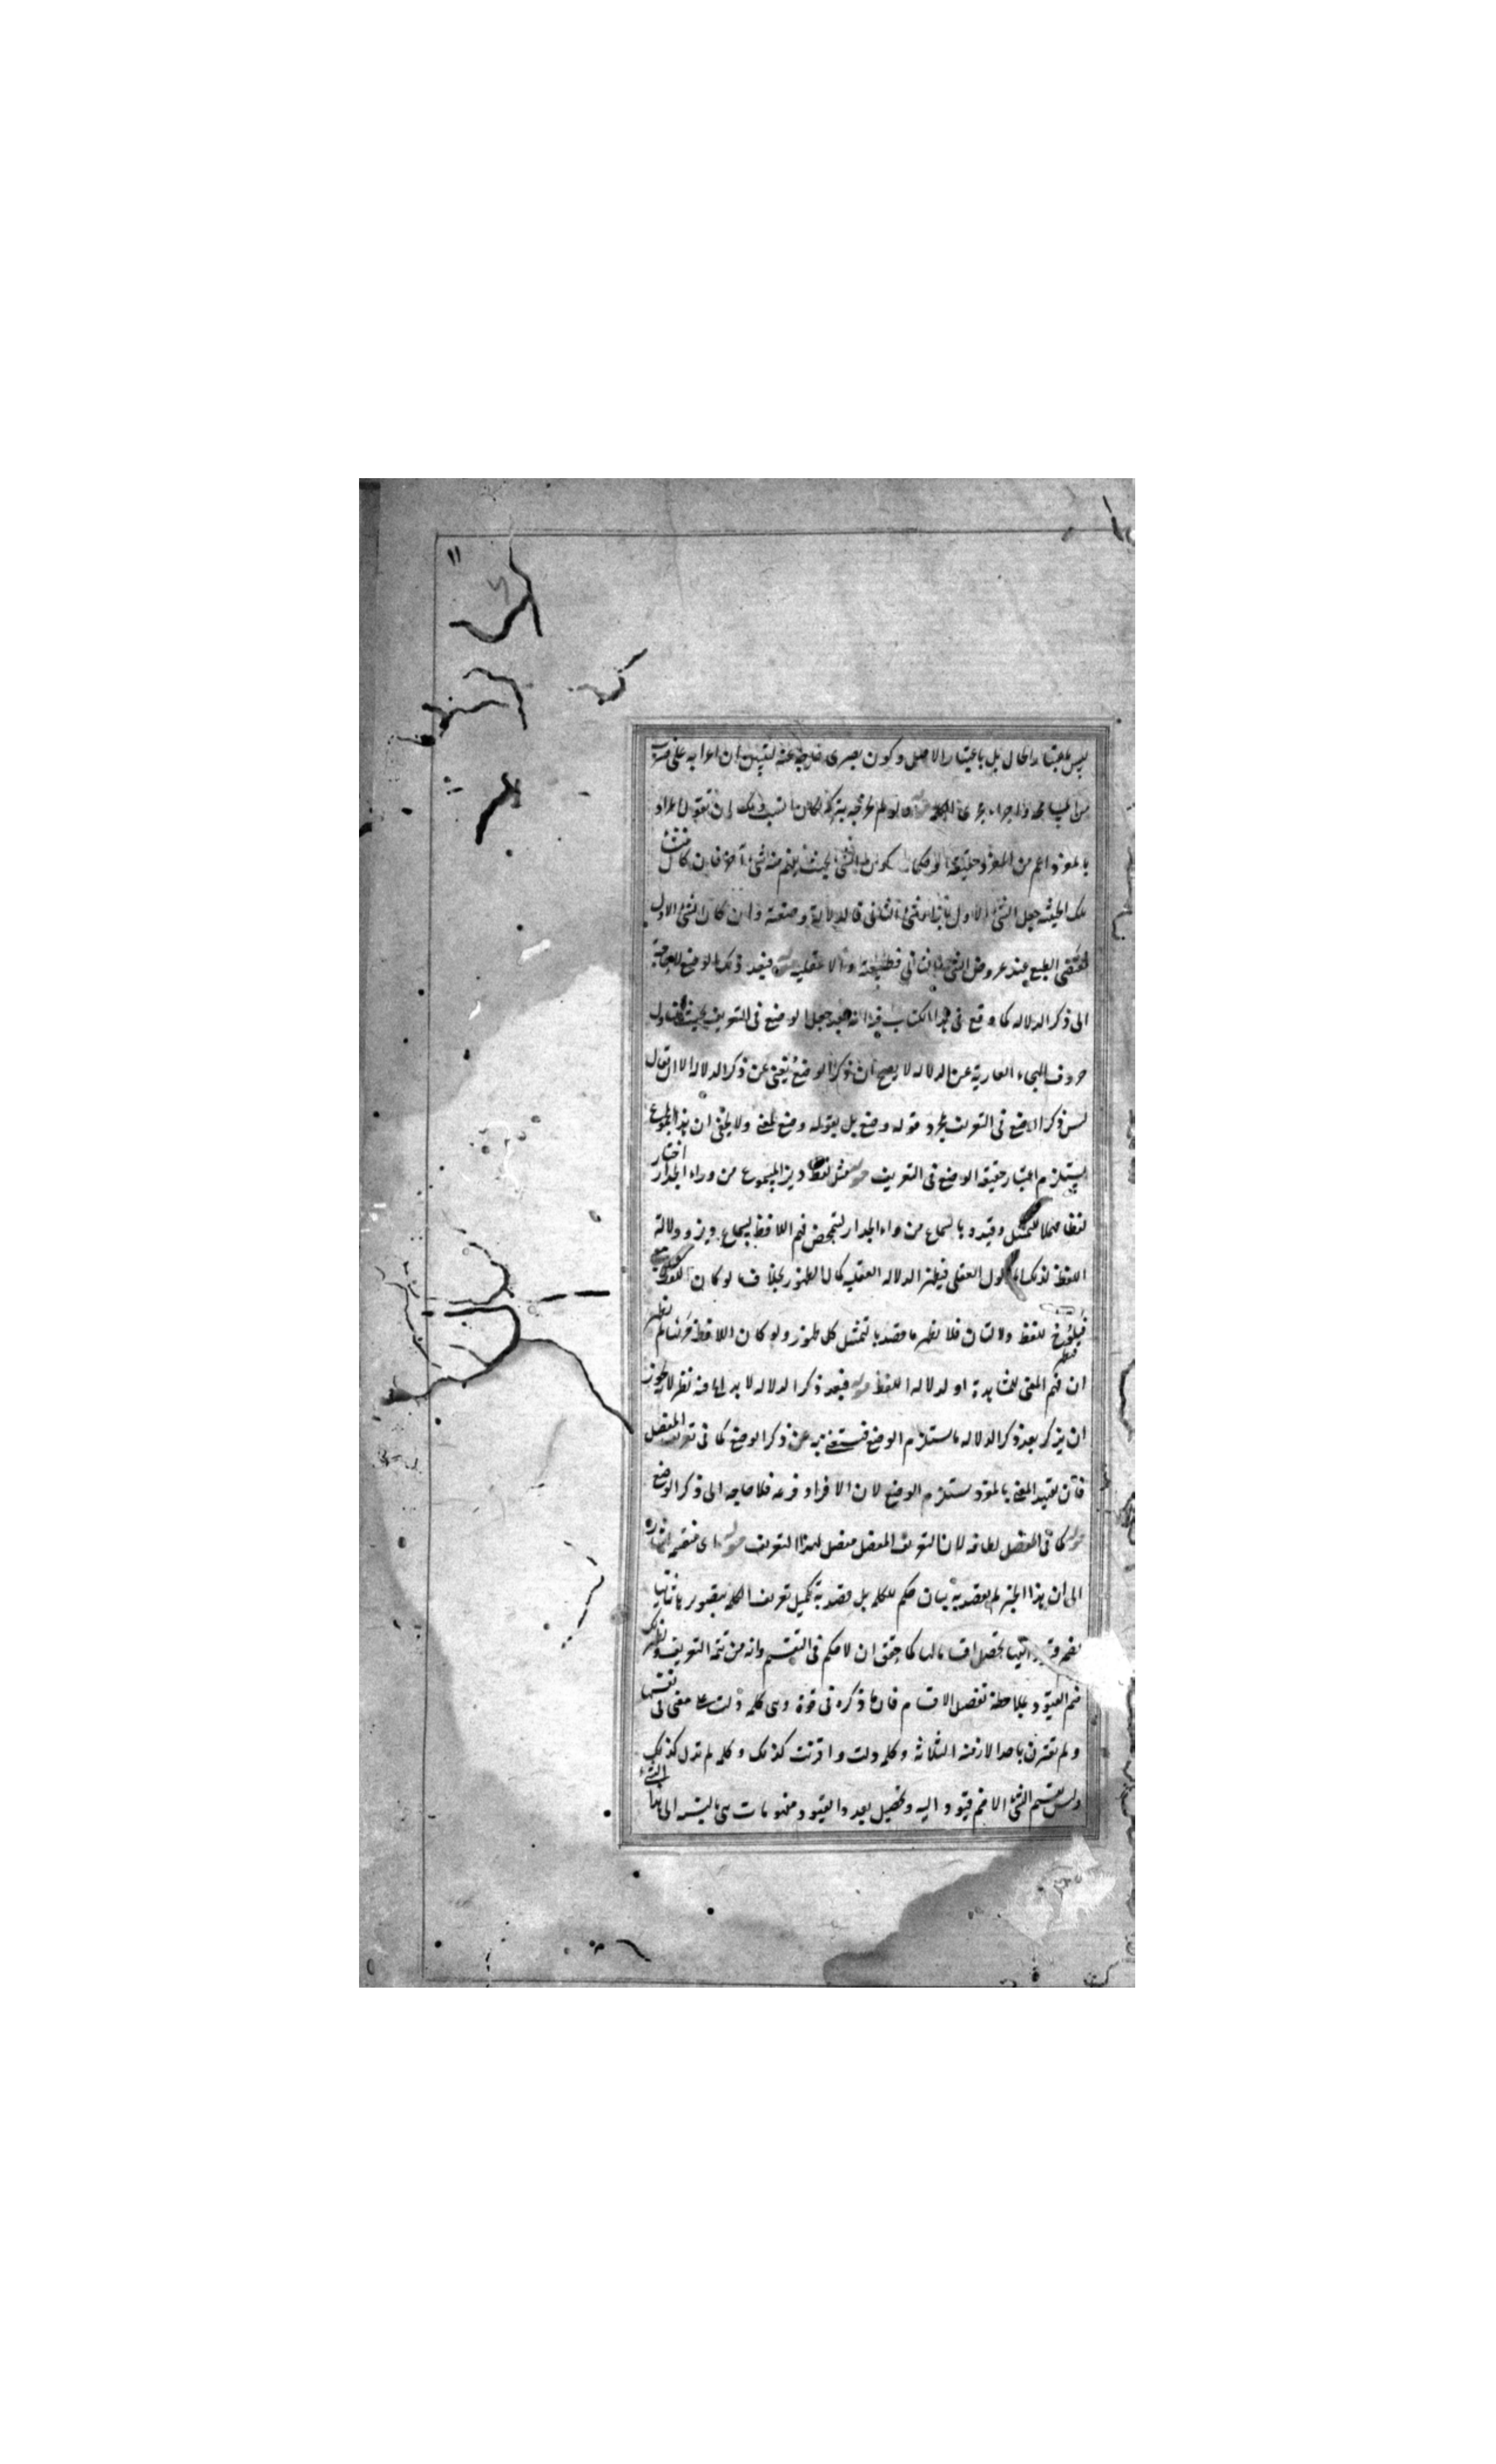 ١١
ليس باعتبار الحال بل باعتبار الاصل وكون بصرى خارجة عنه لتبين ان اعرابه على
من المسامحة واجراء مجرى الكلمة ولو لم يخرجه بترك لكان انسب لك ان تقول المراد
بالمفرد اعم من المفرد حقيقة او حكما كون الشئ بحيث يفهم منه شئ آخر فان كان منشأ
تلك الحيثية جعل الشئ الاول بازاء الشئ الثانى فالدلالة وضعية وان كان الشئ الاول
مقتضى الطبع عند عروض الشئ الثانى فطبيعية والا عقلية فبعد ذكر الوضع لا حاجة
الى ذكر الدلالة كما وقع فى هذا الكتاب فيه انه بعد جعل الوضع فى التعريف بحيث يتناول
حروف الهجاء العارية عن الدلالة لا يصح ان ذكر الوضع يغنى عن ذكر الدلالة الا ان يقال
ليس ذكر الوضع فى التعريف بمجرد قوله وضع بل بقوله وضع لمعنى ولا يخفى ان هذا المجموع
يستلزم اعتبار حقيقة الوضع فى التعريف قوله مثل لفظ ديز المسموع من وراء الجدار اختار
لفظا مهملا للتمثيل وقيده بالسماع من وراء الجدار لتمحض فهم اللافظ بسماع ديز ودلالة
اللفظ لذلك المدلول العقلى فيظهر الدلالة العقلية كمال الظهور بخلاف ما لو كان اللفظ
للفظ دلالتان فلا يظهر ما قصد بالتمثيل كل ظهور ولو كان اللافظ مرئيا لم يظهر
ان فهم المعنى للمشاهدة او لدلالة اللفظ قوله فبعد ذكر الدلالة لا بد فيه نظر لانه يجوز
ان يذكر بعد ذكر الدلالة ما يستلزم الوضع فيستغنى به عن ذكر الوضع كما فى تعريف المفصل
فان تقييد المعنى بالمفرد يستلزم الوضع لان الافراد فرعه فلا حاجة الى ذكر الوضع
قوله كما فى المفصل لطافة لان التعريف المفصل مفصل لهذا التعريف قوله اى منقسمة اشارة
الى ان هذا الجزء لم يقصد به بيان حكم للكلمة بل قصد به تكميل تعريف الكلمة
بضم قيود اليها تحصل اقسامها كما حقق ان لا حكم فى التقسيم وانه من تتمة التعريف
ضم القيود بملاحظة تفصيل الاقسام فان ما ذكره فى قوة وهى كلمة دلت على معنى فى نفسها
ولم تقترن باحد الازمنة الثلاثة وكلمة دلت واقترنت كذلك وكلمة لم تدل كذلك
وليس تقسيم الشئ الا ضم قيود اليه وتحصيل بعد القيود مفهومات هى بالنسبة الى هذا الشئ